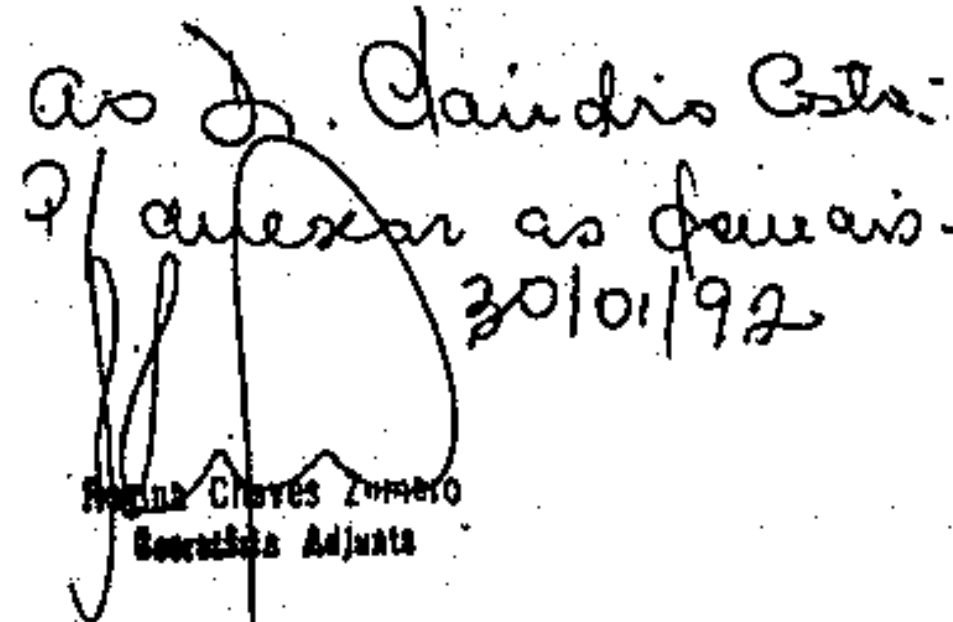 Ao Dr. Claudio Costa:
P/ anexar as demais.
30/01/92
Regina Chaves Zumero
Secretária Adjunta